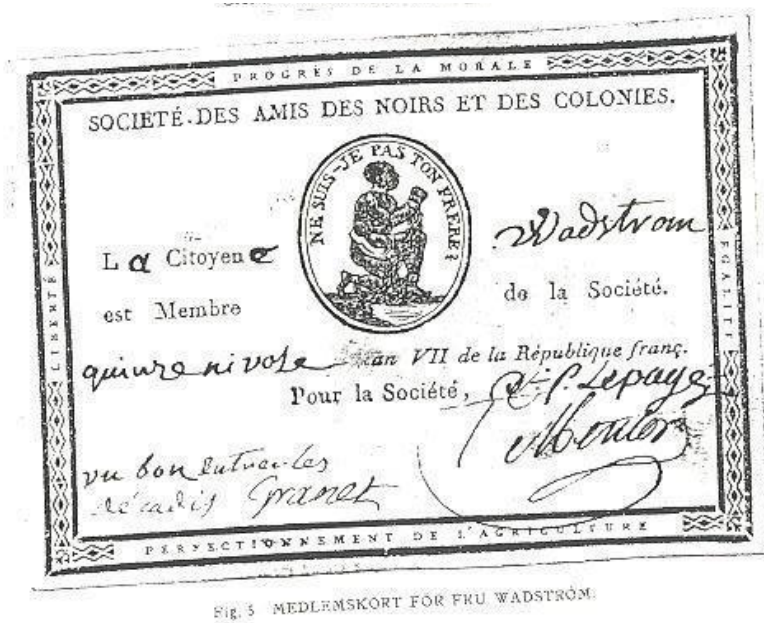 PROGRÈS DE LA MORALE
SOCIETÉ DES AMIS DES NOIRS ET DES COLONIES.
NE SUIS-JE PAS TON FRERE?
La Citoyene Wadstrom
est Membre de la Société.
quinze nivose an VII de la République franç.
Pour la Société,
Lepage
vu bon
décadis Granet
LIBERTÉ
EGALITÉ
PERFECTIONNEMENT DE L'AGRICULTURE
Fig. 5 MEDLEMSKORT FÖR FRU WADSTRÖM.